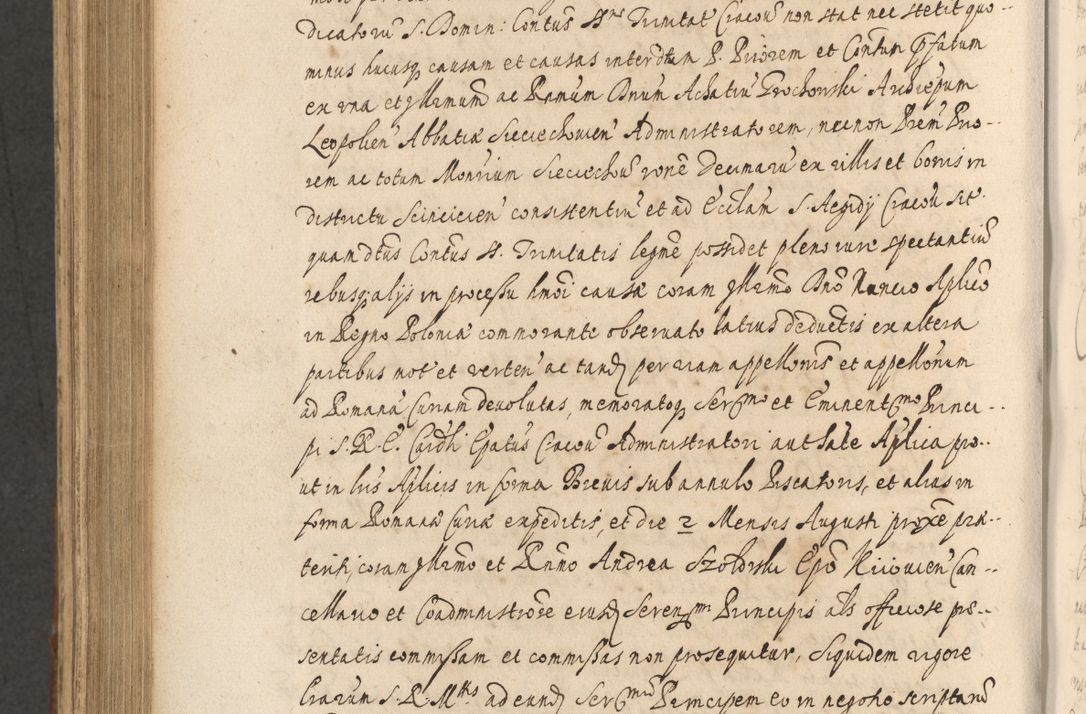 dicatorũ S. Domin: Contus Ss̃ Trinitat' Cracou' non stat nec stetit quo-
minus hucusq; causam et causas inter dttm P. Priorem et Contum p̃fatum
ex vna et Illmum ac Rnmum Dnum Achatiũ Grochowski Archiepum
Leopolien' Abbatiæ Sieciechouien' Administratorem, necnon Prem Prio-
rem ac totum Monrium Sieciechou' rone Decimarũ ex villis et bonis in
districtu Scincicien' consistentiũ et ad Ecclam S. Aegidij Cracou' sit'
quam dtus Contus SS. Trinitatis legme possidet pleno iure spectantiũ
rebusq; alijs in processu hmoi causæ coram Illrmo Dno Nuncio Aplico
in Regno Poloniæ commorante obseruato latius deductis ex altera
partibus mot' et verten' ac tandẽ per viam appellonis et appellonum
ad Romanã Curiam deuolutas, memoratoq; Serẽmo et Eminentmo Princi-
pi S. R. E. Cardli Epatus Cracou' Administratori aut Sale Aplica pro-
ut in lris Aplicis in forma Breuis sub annulo Piscatoris, et alias in
forma Romanæ Curiæ expeditis, et die 2 Mensis Augusti proxe præ-
teriti, coram Illrmo et Rnmo Andrea Szoldrski Epo Kiiouien' Can-
cellario et Coadministrore eiusdẽ Serenmi Principis als officiose præ-
sentatis commissam et commissas non prosequitur, Siquidem vigore
lrarum S. R. Mttis ad eundẽ Sermum Principem eo in negotio scriptarũ